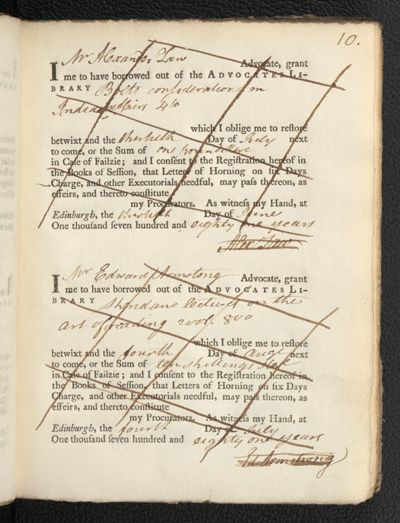 10.
Mr Alexandr Law Advocate, grant
I me to have borrowed out of the ADVOCATES LI-
BRARY Bolts considerations on
India affairs 4to
which I oblige me to restore
betwixt and the thirtieth Day of July next
to come, or the Sum of one pound
in Case of Failzie; and I consent to the Registration hereof in
the Books of Session, that Letters of Horning on six Days
Charge, and other Executorials needful, may pass thereon, as
effeirs, and thereto constitute
my Procurators. As witness my Hand, at
Edinburgh, the thirtieth Day of June
One thousand seven hundred and eighty one years
Alexr Law
Mr Edward Armstrong Advocate, grant
I me to have borrowed out of the ADVOCATES LI-
BRARY Sheridans lectures on the
art of reading 2 vol. 8vo
which I oblige me to restore
betwixt and the fourth Day of Augt next
to come, or the Sum of ten shillings Ster
in Case of Failzie; and I consent to the Registration hereof in
the Books of Session, that Letters of Horning on six Days
Charge, and other Executorials needful, may pass thereon, as
effeirs, and thereto constitute
my Procurators. As witness my Hand, at
Edinburgh, the fourth Day of July
One thousand seven hundred and eighty one years
Ed. Armstrong